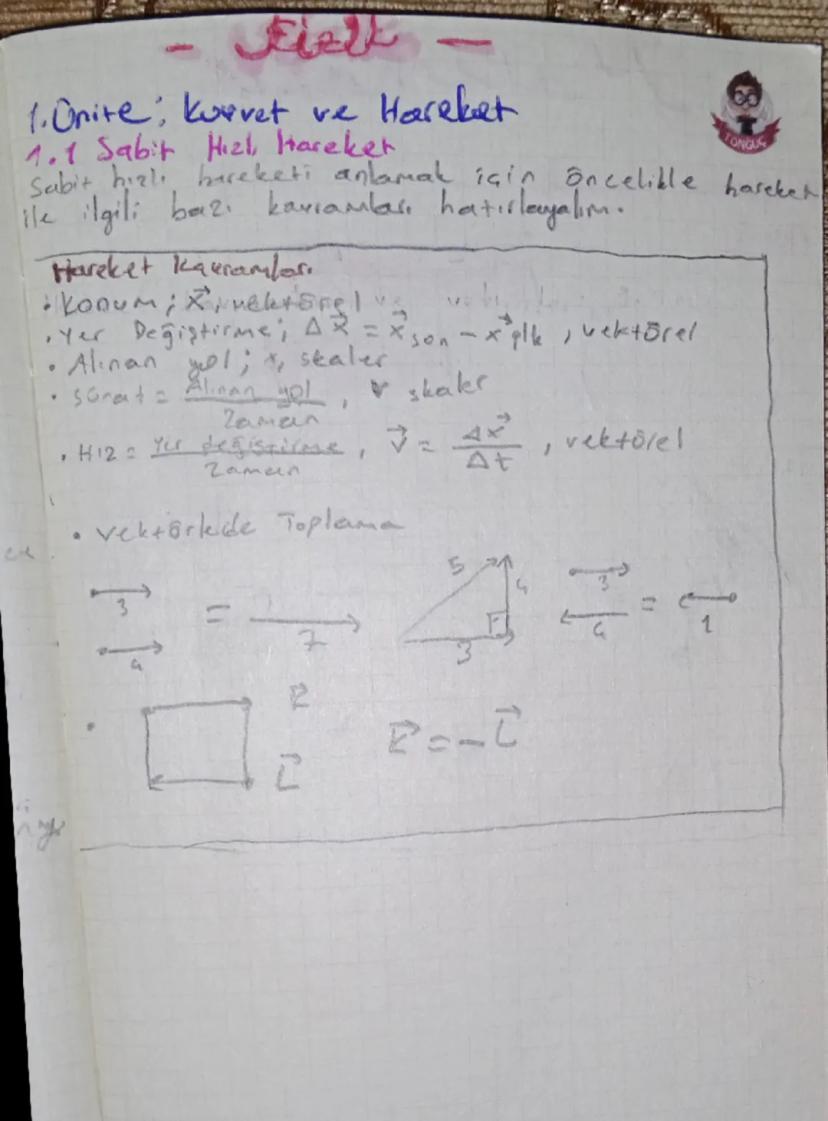 - Fizik -
TONGUÇ
1. Ünite; kuvvet ve Hareket
1.1 Sabit Hızlı Hareket
Sabit hızlı hareketi anlamak için öncelikle hareket
ile ilgili bazı kavramları hatırlayalım.
Hareket Kavramları
• Konum; x⃗, vektörel
• Yer Değiştirme; Δx⃗ = x⃗son - x⃗ilk, vektörel
• Alınan yol; x, skaler
• Sürat = Alınan yol / Zaman, v skaler
• Hız = Yer değiştirme / Zaman, v⃗ = Δx⃗ / Δt, vektörel
• Vektörlede Toplama
3 4 = 7
5 4 3
3 4 = 1
• K⃗ L⃗ K⃗ = -L⃗